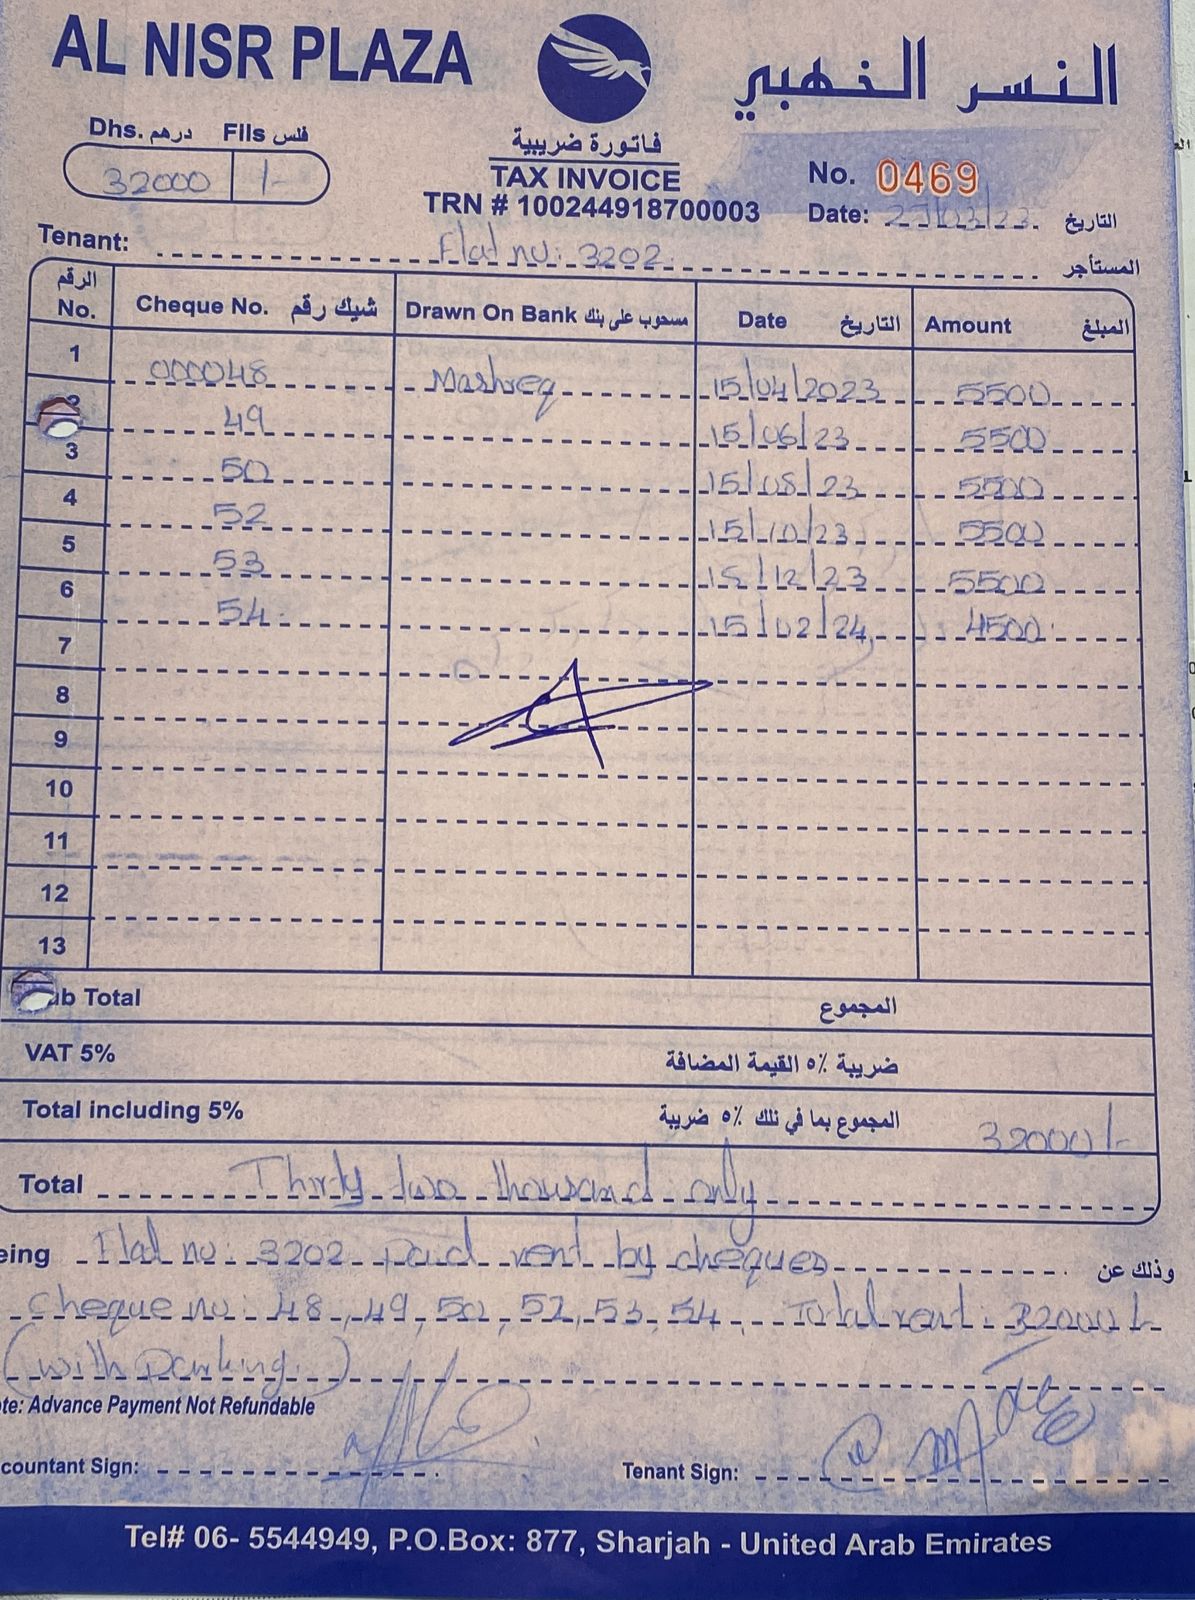 AL NISR PLAZA
النسر الذهبي
Dhs. درهم Fils فلس
32000 1-
فاتورة ضريبية
TAX INVOICE
TRN # 100244918700003
No. 0469
Date: /03/23 التاريخ
Tenant: Flat no: 3202 المستأجر
الرقم No. Cheque No. شيك رقم Drawn On Bank مسحوب على بنك Date التاريخ Amount المبلغ
1 000048 Mashreq 15/04/2023 5500
2 49 15/06/23 5500
3 50 15/08/23 5500
4 52 15/10/23 5500
5 53 15/12/23 5500
6 54 15/02/24 4500
7
8
9
10
11
12
13
ub Total المجموع
VAT 5% ضريبة ٥٪ القيمة المضافة
Total including 5% المجموع بما في تلك ٥٪ ضريبة 32000/-
Total Thirty two thousand only
eing Flat no: 3202 paid rent by cheques وذلك عن
Cheque no: 48, 49, 50, 52, 53, 54 Total rent: 32000/-
(with parking.)
te: Advance Payment Not Refundable
countant Sign:
Tenant Sign:
Tel# 06- 5544949, P.O.Box: 877, Sharjah - United Arab Emirates